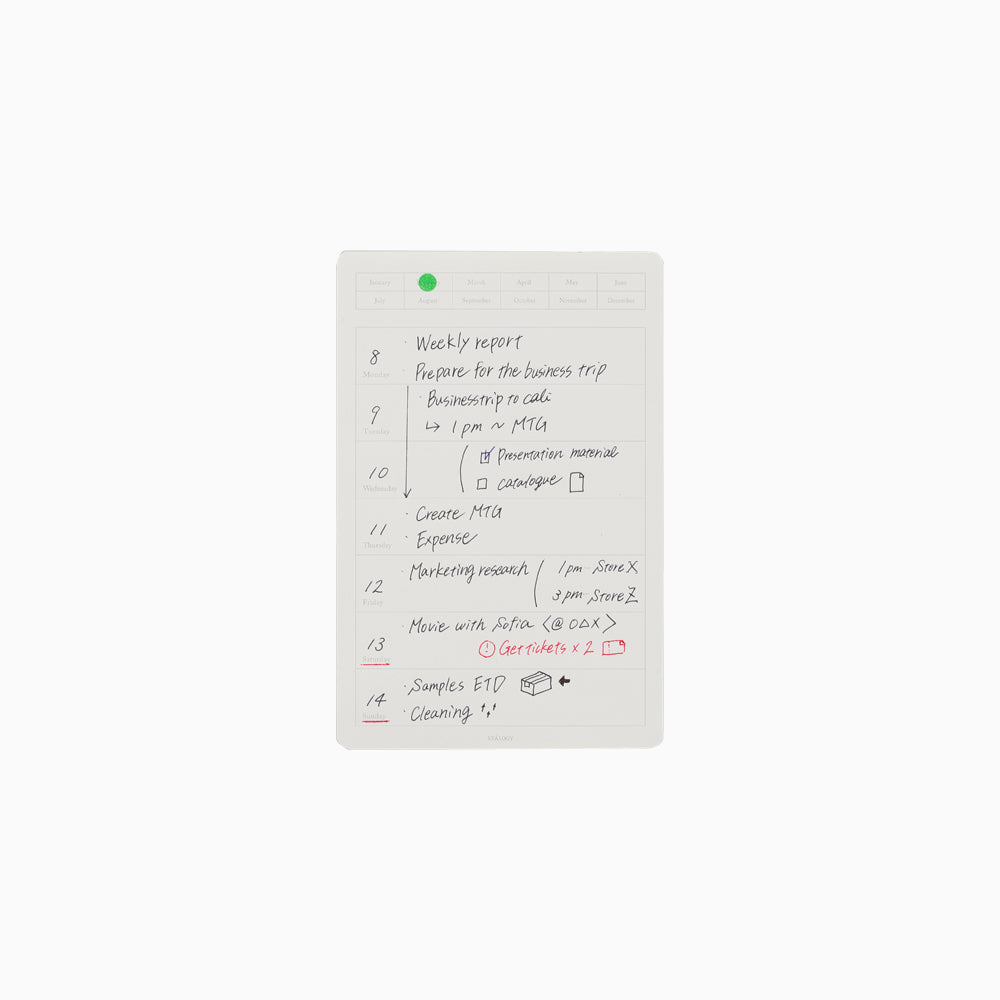 January March April May June
July August September October November December
8 Monday
· Weekly report
· Prepare for the business trip
9 Tuesday
· Businesstrip to cali
↳ 1 pm ~ MTG
10 Wednesday
☑ Presentation material
☐ catalogue
11 Thursday
· Create MTG
· Expense
12 Friday
· Marketing research ( 1 pm Store X
3 pm Store Z
13 Saturday
· Movie with Sofia <@ O△X>
! Get tickets x 2
14 Sunday
· Samples ETD
· Cleaning
STÁLOGY